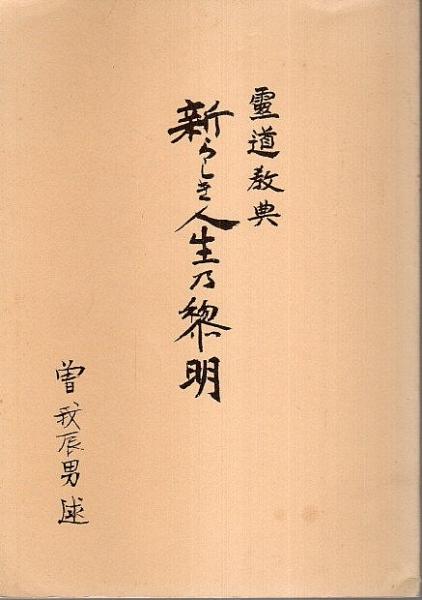 靈道教典
新らしき人生乃黎明
曽我辰男述